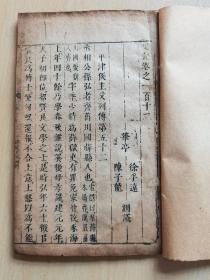 卷之一百十二
華亭
徐孚遠
陳子龍
測議
平津侯主父列傳第五十二
丞相公孫弘者齊菑川國薛縣人也
字季少時爲薛獄吏有罪免家貧牧豕海
上年四十餘乃學春秋雜說養後母孝謹建元元年
天子初卽位招賢良文學之士是時弘年六十徵
以賢良爲博士使匈奴還報不合上意上怒以爲不能